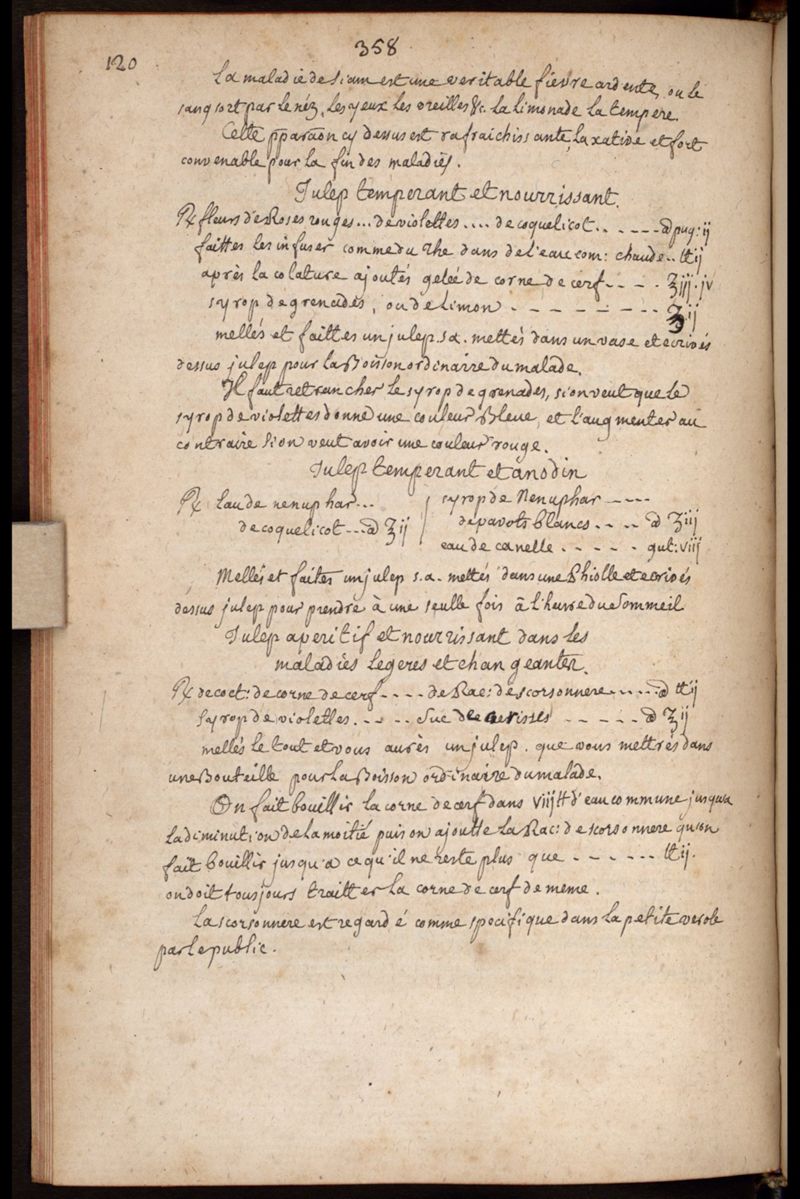 358
120
La maladie de siam est une veritable fievre ardente, ou le
sang sort par le néz, les yeux les oreilles &c. la limonade la tempere.
Cette pparaõn cy dessus est rafraichissante, laxative et fort
convenable pour la fin des maladiës.
Julep temperant et nourrissant.
℞ fleurs de Roses rouges... de violettes.... de coquelicot.. - - - - ā pug: ij
faittes les infuser comme du the dans de l'eau com: chaude.. ℔ij
après la colature ajoutés gelée de corne de cerf - - - - ℥iij. jv
syrop de grenades, ou de limon. - - - - - - - - ℥ij
mellés et faittes un julep s.a. mettés dans un vase et ecrivés
dessus julep pour la Boisson ordinaire du malade.
Il faut retrancher le syrop de grenades, si on veut que le
syrop de violettes donne une couleur Bleue, et l'augmenter au
contraire si on veut avoir une couleur rouge.
Julep temperant et anodin
℞ Eau de nenuphar...
de coquelicot...ā ℥ij
syrop de Nenuphar - - - -
de pavots blancs.. .. ā ℥iij
eau de canelle. . . . . gut: viij
Mellés et faites un julep s.a. mettés dans une Phiolle et ecrivés
dessus julep pour prendre à une seulle fois â l'heure du sommeil
Julep aperitif et nourrissant dans les
maladiës legeres et changeantes.
℞ decoct: de corne de cerf - - - - de Rac: de scorsonnere.. - . . ā ℔ij
Syrop de violettes. . - . . suc de cerisses - - - - - ā ℥ij
mellés le tout et vous aurès un julep. que vous mettrés dans
une Bouteille pour la Boisson ordinaire du malade.
On fait bouillir la corne de cerf dans viij ℔ d'eau commune jusqu'a
la diminution de la moitié puis on ajoutte la Rac: de scorsonnere qu'on
fait bouillir jusqu'a ce qu'il ne reste plus que - - - - - - ℔ij.
on doit tousjours traitter la corne de cerf de meme.
La scorsonnere est regardé comme specifique dans la petite verole
par le public.